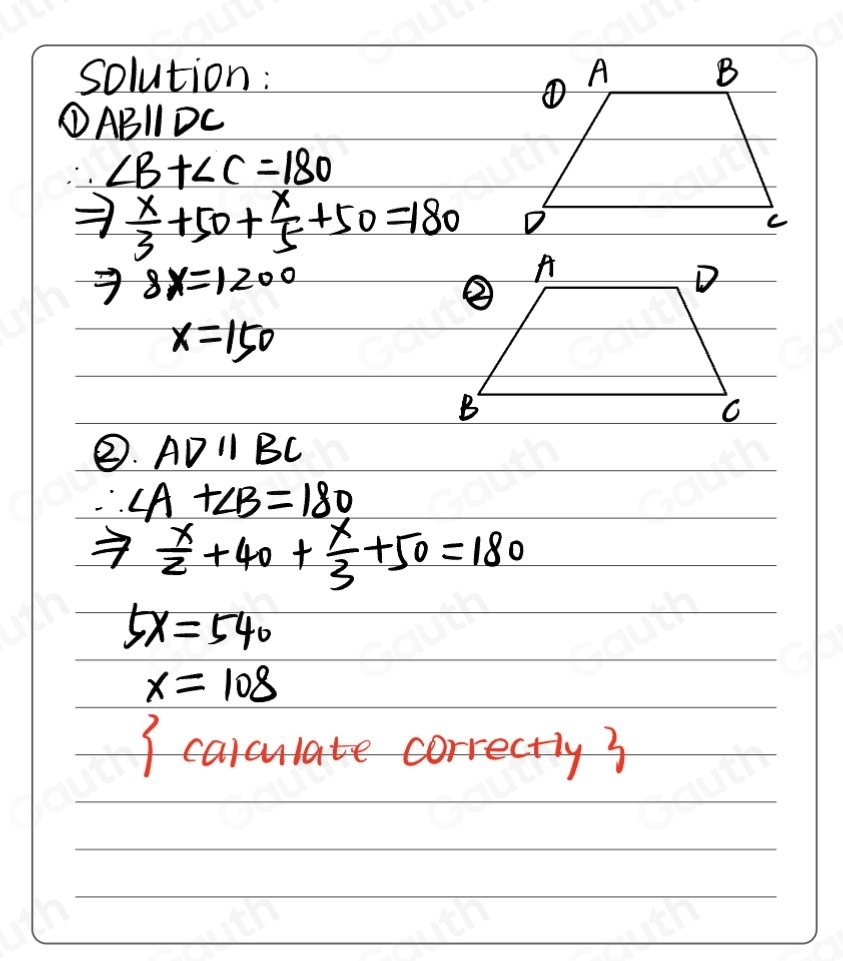 Solution:
① AB∥DC
∴ ∠B+∠C=180
⇒ x/3+50+x/5+50=180
⇒ 8x=1200
x=150
① A B
D C
② A D
B C
②. AD∥BC
∴ ∠A+∠B=180
⇒ x/2+40+x/3+50=180
5x=540
x=108
{calculate correctly}
Gauth